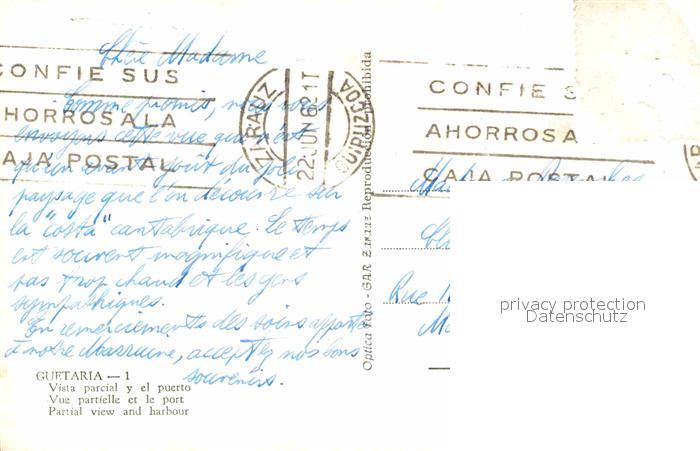 Chère Madame
Comme promis, nous vous
envoyons cette vue qui n'est
qu'un avant goût du joli
paysage que l'on découvre sur
la "costa" cantabrique. Le temps
est souvent magnifique et
pas trop chaud et les gens
sympathiques.
En remerciements des soins
à notre Marraine, acceptez nos bons
souvenirs.
GUETARIA — 1
Vista parcial y el puerto
Vue partielle et le port
Partial view and harbour
CONFIE SUS
AHORROS A LA
CAJA POSTAL
ZARAUZ
22 JUN 62 17
GUIPUZCOA
Optica Foto - GAR Zarauz Reproduccion prohibida
CONFIE S
AHORROS A
CAJA POSTAL
Rue
privacy protection
Datenschutz